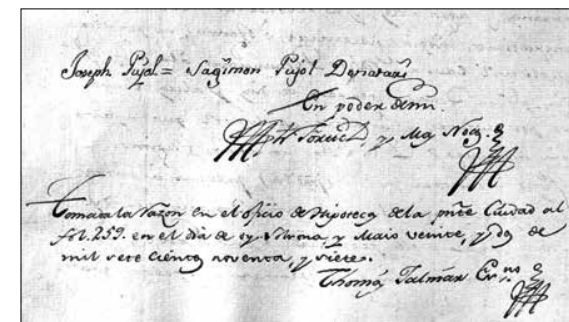 Joseph Pujol = Sagimon Pujol Donataris
En poder de mi
y Maj Not.
Tomada la Razon en el oficio de Hipoteca de la pnte Ciudad al
fol. 259. en el dia de oy Gerona, y Maio veinte, y dos de
mil sete Cientos noventa, y siete.
Thomas Talmàs Esno.